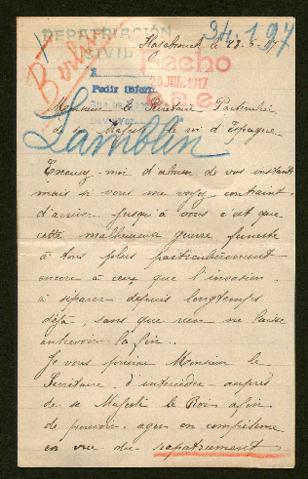 REPATRIACIÓN
CIVIL
34.197
Hazebrouck le 23-5-17
Berlin
Fecho
20 JUL. 1917
Pedir inform.
Monsieur le Secrétaire Particulier
de sa Majesté le roi d'Espagne.
Lamblin
Excusez-moi d'abuser de vos instants
mais si vous me voyez contraint
d'arriver jusqu'à vous c'est que
cette malheureuse guerre funeste
à tous plus particulièrement
encore à ceux que l'invasion
a séparer depuis longtemps
déjà, sans que rien ne laisse
entrevoir la fin.
Je vous Monsieur le
Secrétaire d'intercéder auprès
de sa Majesté le Roi afin
de pouvoir agir en
en vue du rapatriement